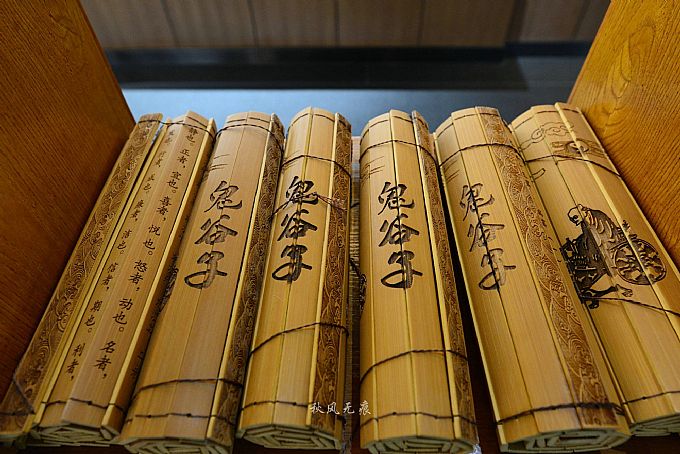 静也。正者，宜也。喜者，悦也。怒者，动也。名者，
成也。廉者，洁也。信者，期也。利者，
鬼谷子
鬼谷子
鬼谷子
鬼谷子
秋风无痕